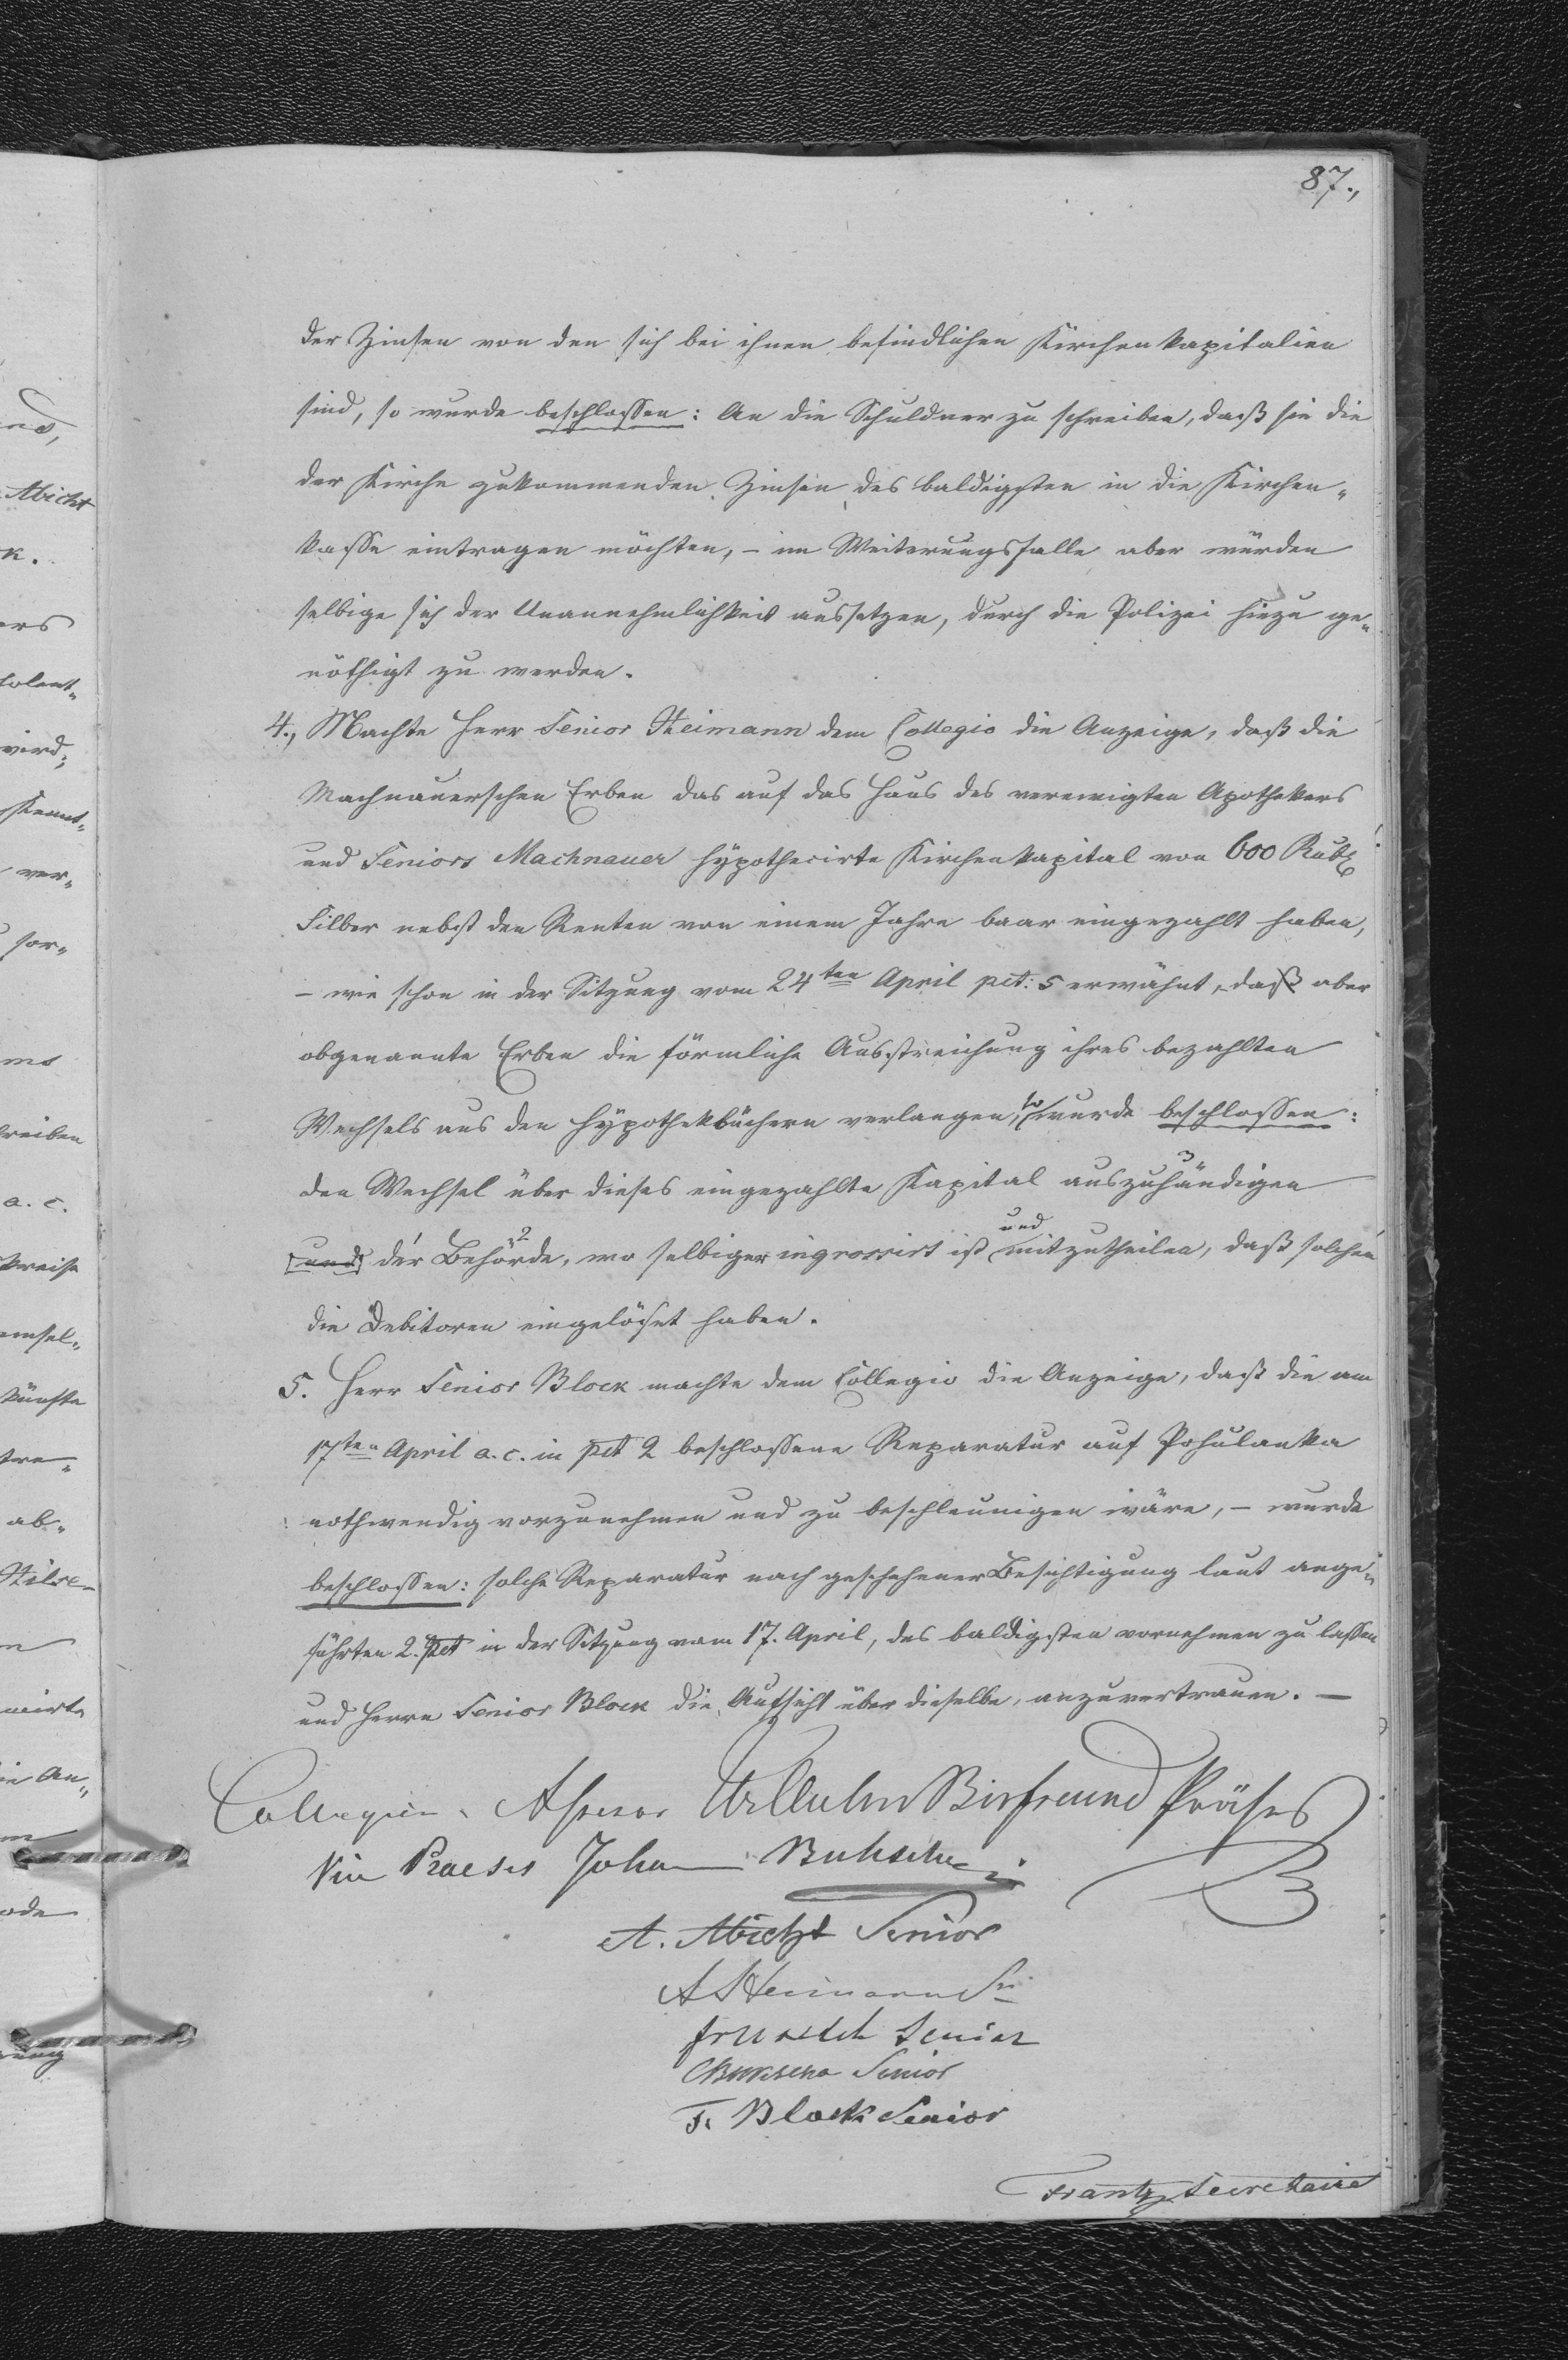 87.,
der Zinsen von den sich bei ihnen befindlichen Kirchenkapitalien
sind, so wurde beschlossen: An die Schuldner zu schreiben, daß sie die
der Kirche zukommenden Zinsen des baldigsten in die Kirchen-
kasse eintragen möchten, – im Weiterungsfalle aber würden
selbige sich der Unannehmlichkeit aussetzen, durch die Polizei hiezu ge-
nöthigt zu werden.
4., Machte Herr Senior Heimann dem Collegio die Anzeige, daß die
Machnauerschen Erben das auf das Haus des verewigten Apothekers
und Seniors Machnauer hypothecirte Kirchenkapital von 600 Rubl
Silber nebst den Renten von einem Jahre baar eingezahlt haben,
– wie schon in der Sitzung vom 24ten April pct: 5 erwähnt, – daß aber
obgenannte Erben die förmliche Ausstreichung ihres bezahlten
Wechsels aus den Hypothekbüchern verlangen, so wurde beschlossen:
den Wechsel über dieses eingezahlte Kapital auszuhändigen 3
und der Behörde, 2 wo selbiger ingrossirt ist und mitzutheilen, daß solchen
die Debitoren eingelöset haben.
5. Herr Senior Block machte dem Collegio die Anzeige, daß die am
17ten April a. c. in pct 2 beschlossene Reparatur auf Pohulanka
nothwendig vorzunehmen und zu beschleunigen wäre, – wurde
beschlossen: solche Reparatur nach geschehener Besichtigung laut ange-
führten 2. pct in der Sitzung vom 17. April, des baldigsten vornehmen zu lassen
und Herrn Senior Block die Aufsicht über dieselbe, anzuvertrauen. –
Collegien Assessor Wilhelm Birfreund Präses
Vice Praeses Johann
A. Abicht Senior
A Heimann Sen
Senior
Senior
F. Block Senior
Frantz Secretaire